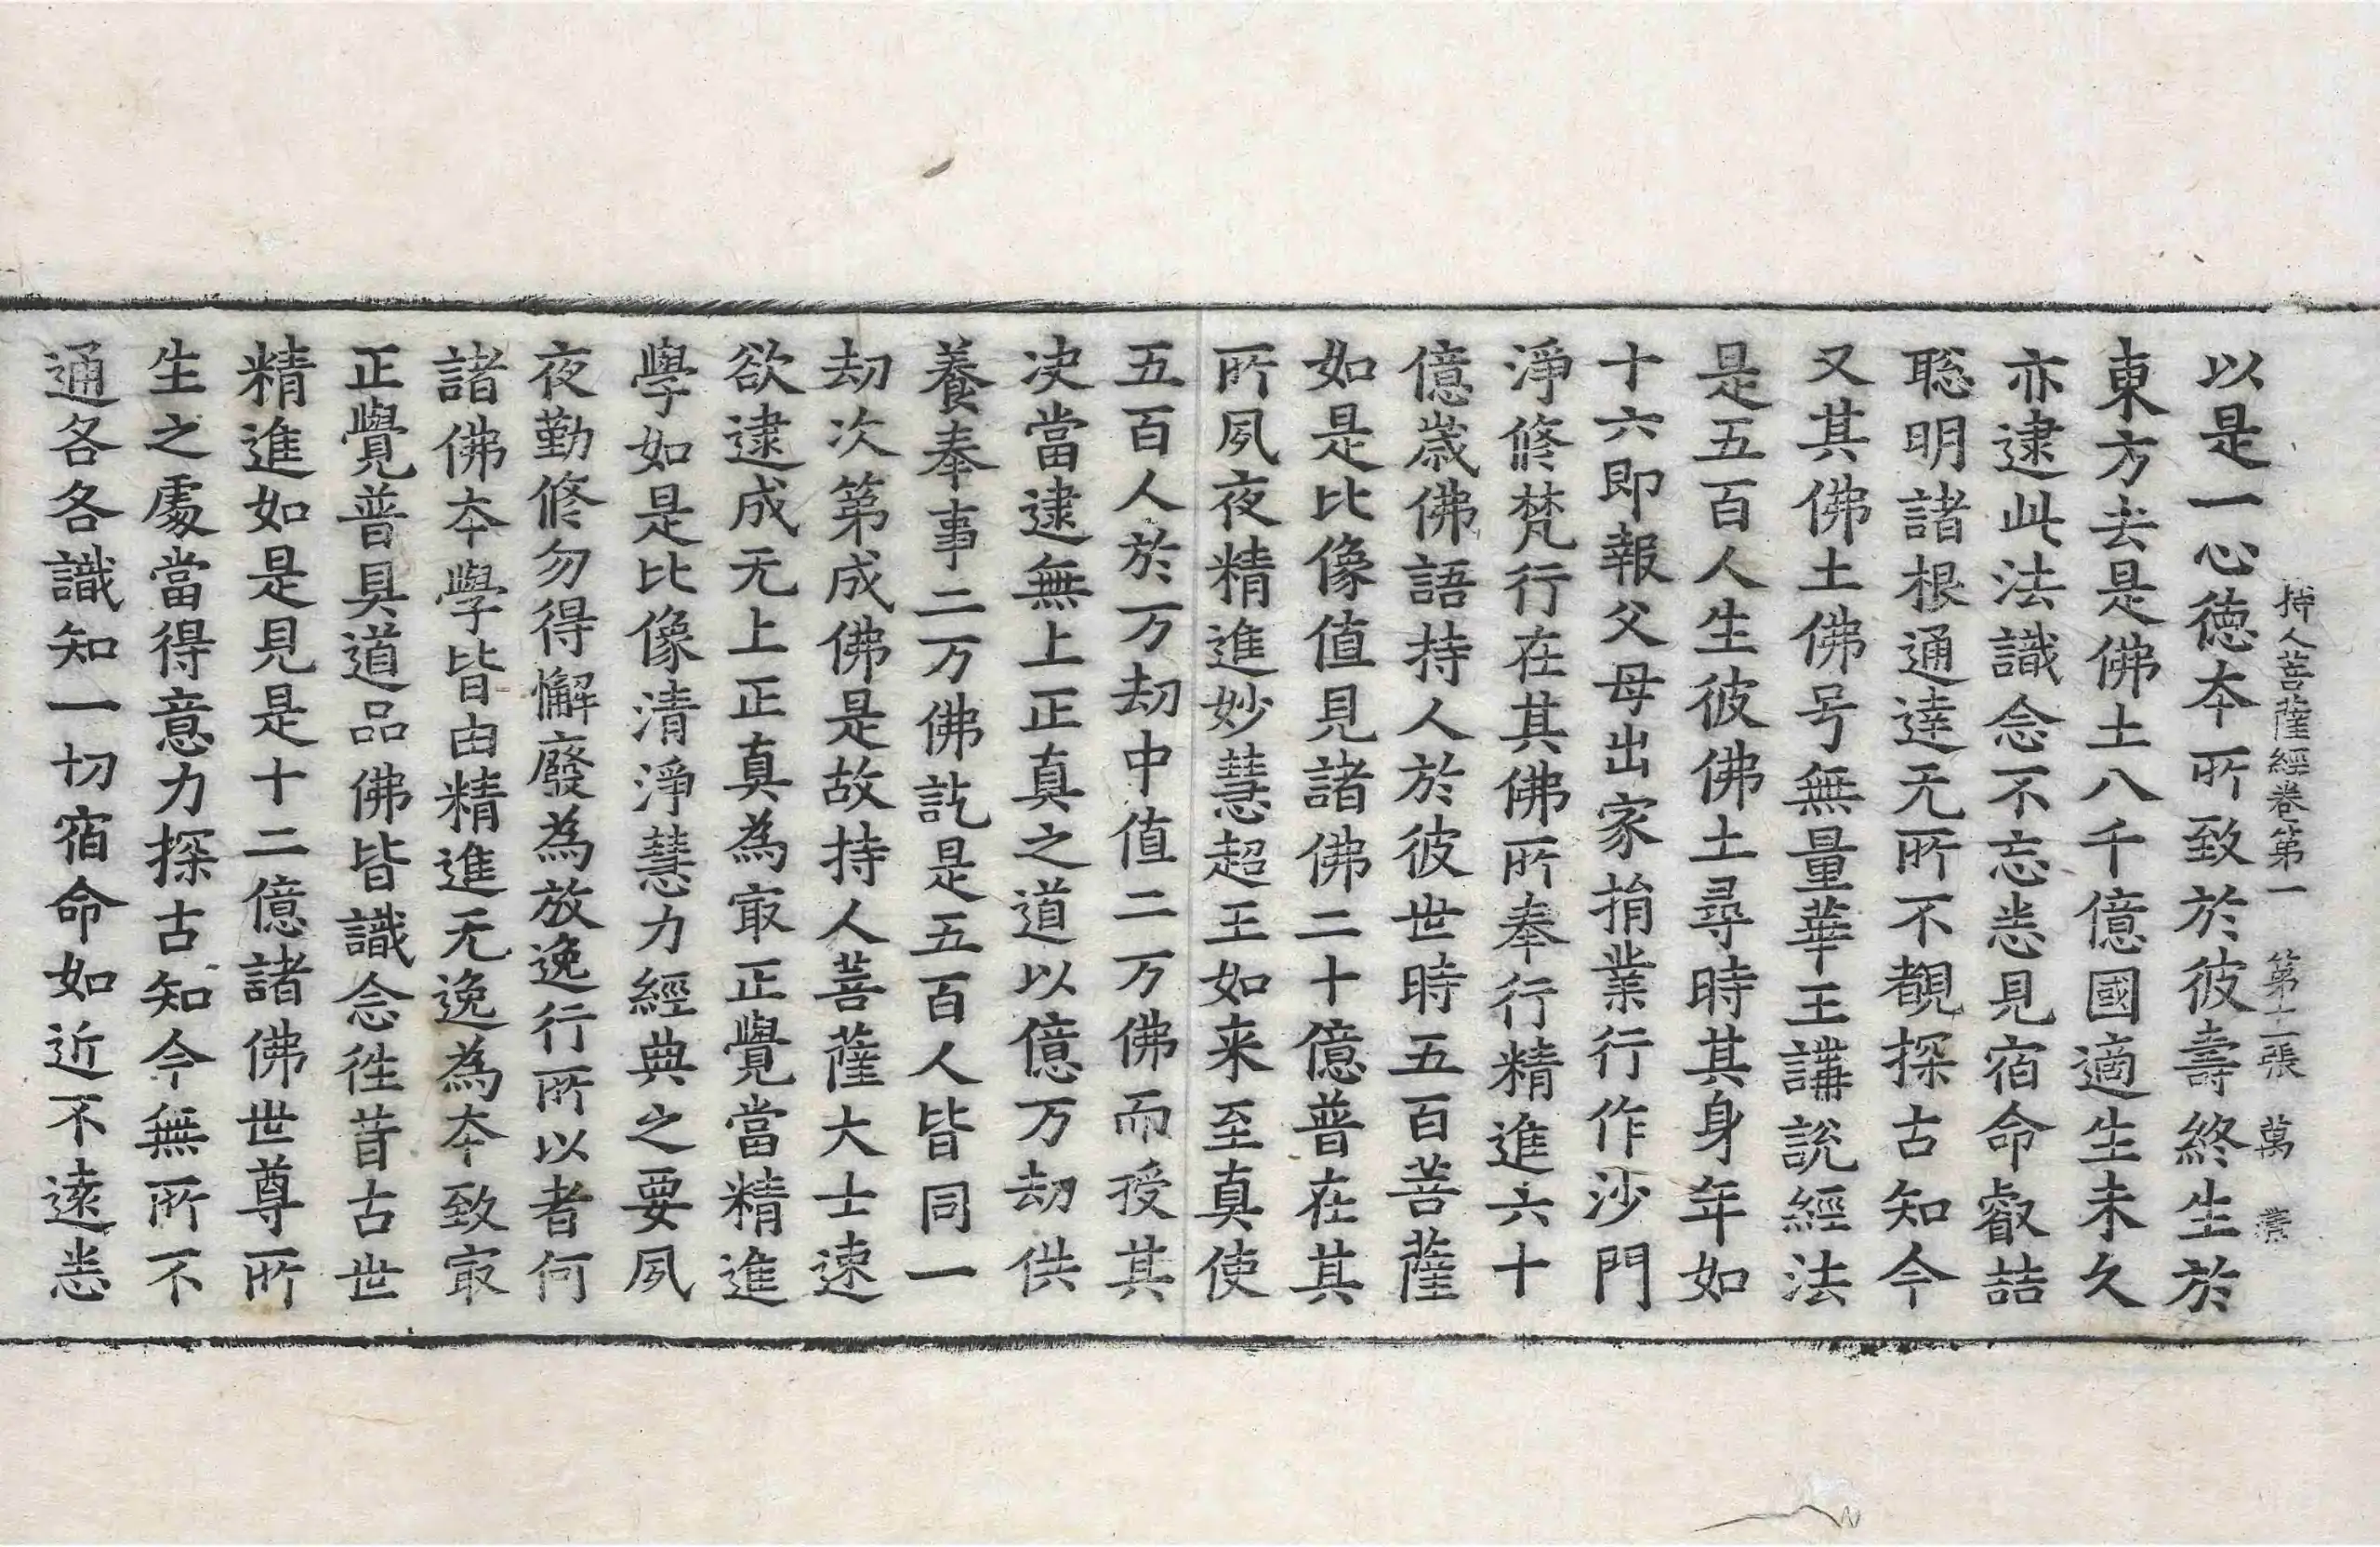 持人菩薩經卷第一　第十二張　萬
以是一心徳夲所致於彼壽終生於
東方去是佛土八千億國適生未久
亦逮此法識念不忘悉見宿命叡喆
聡明諸根通達无所不覩探古知今
又其佛土佛号無量華王講說經法
是五百人生彼佛土尋時其身年如
十六即報父母出家捐業行作沙門
淨修梵行在其佛所奉行精進六十
億歲佛語持人於彼世時五百菩薩
如是比像值見諸佛二十億普在其
所夙夜精進妙慧超王如来至真使
五百人於万劫中值二万佛而授其
决當逮無上正真之道以億万劫供
養奉事二万佛訖是五百人皆同一
劫次第成佛是故持人菩薩大士速
欲逮成无上正真為㝡正覺當精進
學如是比像清淨慧力經典之要夙
夜勤修勿得懈廢為放逸行所以者何
諸佛夲學皆由精進无逸為夲致㝡
正覺普具道品佛皆識念徃昔古世
精進如是見是十二億諸佛世尊所
生之處當得意力探古知今無所不
通各各識知一切宿命如近不遠悉